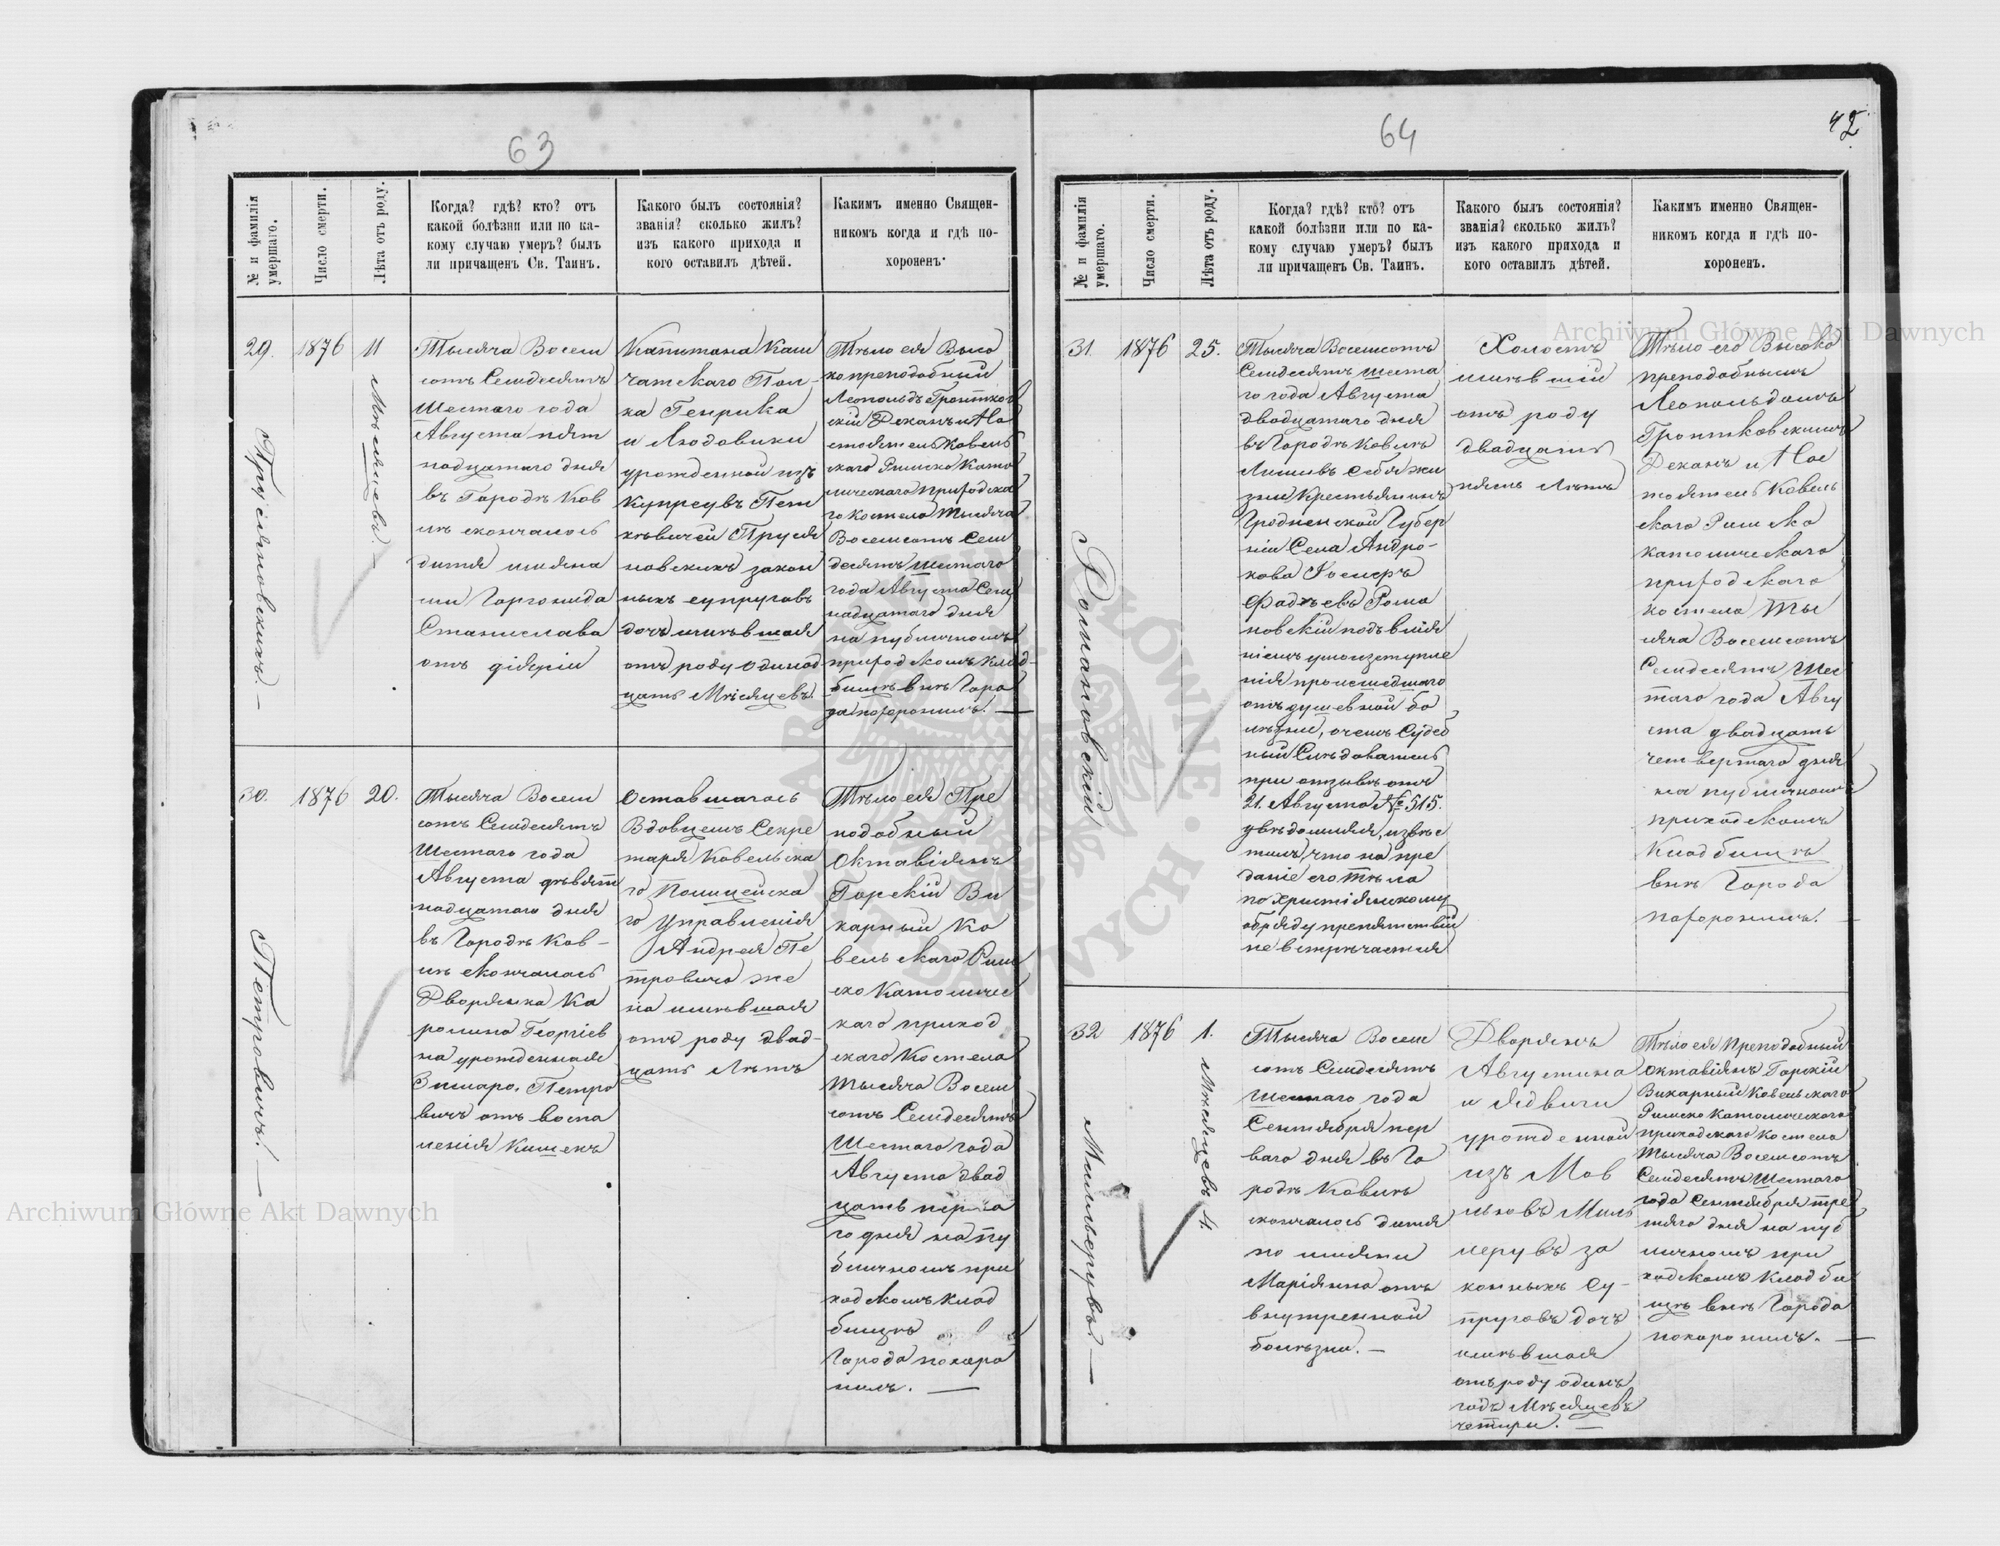 63
№ и фамилія умершаго.
Число смерти.
Лѣта отъ роду.
Когда? гдѣ? кто? отъ
какой болѣзни или по ка-
кому случаю умеръ? былъ
ли причащенъ Св. Таинъ.
Какого былъ состоянія?
званія? сколько жилъ?
изъ какого прихода и
кого оставилъ дѣтей.
Какимъ именно Священ-
никомъ когда и гдѣ по-
хороненъ.
29.
Прусяновскихъ. —
1876
11
Мѣсяцевъ. —
Тысяча Восем
сотъ Семдесятъ
Шестаго года
Августа пят
надцатаго дня
въ Городѣ Ков
лѣ скончалось
дитя имяна
ми Горгонида
Станислава
отъ
Капитана Кам
чатскаго Пол-
ка Генрика
и Людовики
урожденной изъ
Пет
кѣвичей Пруся
новскихъ закон
ныхъ супруговъ
дочъ имѣвшая
отъ роду одинад
цать Мѣсяцевъ.
Тѣло ея Высо
копреподобный
Леопольдъ Гронтков
скій Деканъ и На
стоятель Ковель
скаго Римско Като
лическаго приходска
го костела тысяча
Восемсотъ Сем
десятъ Шестаго
года Августа Сем
надцатаго дня
на публичномъ
приходскомъ клад-
бищѣ внѣ Горо
да похоронилъ. —
30.
Петровичъ. —
1876
20.
Тысяча Восем
сотъ Семдесятъ
Шестаго года
Августа дѣвят
надцатаго дня
въ Городѣ Ков-
лѣ скончалась
Дворянка Ка
ролина Георгіев
на урожденная
Петро
вичъ отъ воспа
ленія Кишекъ
Оставшагось
Вдовцемъ Секре
таря Ковельска
го Полицейска
го Управленія
Андрея Пе
тровича же
на имѣвшая
отъ роду двад-
цать Лѣтъ
Тѣло ея Пре
подобный
Октавіянъ
Горскій Ви
карный Ко
вельскаго Рим
ско Католичес
каго приход
скаго Костела
тысяча Восем
сотъ Семдесятъ
Шестаго года
Августа двад
цать перва
го дня на пу
бличномъ при
ходскомъ клад
бищѣ
Города похоро
нилъ. —
64
42
№ и фамилія умершаго.
Число смерти.
Лѣта отъ роду.
Когда? гдѣ? кто? отъ
какой болѣзни или по ка-
кому случаю умеръ? былъ
ли причащенъ Св. Таинъ.
Какого былъ состоянія?
званія? сколько жилъ?
изъ какого прихода и
кого оставилъ дѣтей.
Какимъ именно Священ-
никомъ когда и гдѣ по-
хороненъ.
31.
Романовскій
1876
25.
Тысяча Восемсотъ
Семдесятъ шеста
го года Августа
двадцатаго дня
въ Городѣ Ковлѣ
Лишивъ себя жи
зни Крестьянинъ
Гродненской Губер
ніи Села Андро-
нова Іосифъ
Фадѣевъ Рома
новскій подъ влія
ніемъ умоизступле
нія происшедшаго
отъ душевной бо
лѣзни, о чемъ Судеб
ный Слѣдователь
при отзывѣ отъ
21. Августа № 515.
увѣдомляя, извѣс
тилъ, что на пре
даніе его тѣла
по Христіянскому
обряду препятствій
не встрѣчается
Холостъ
имѣвшій
отъ роду
двадцать
пять Лѣтъ
Тѣло его Высоко
преподобнымъ
Леопольдомъ
Гронтковскимъ
Деканъ и Нас
тоятель Ковель
скаго Римско
католическаго
приходскаго
костела Ты
сяча Восемсотъ
Семдесятъ Шес
таго года Авгу
ста двадцать
четвертаго дня
на публичномъ
приходскомъ
Кладбищѣ
внѣ Города
похоронилъ. —
32
Мильлерувъ. —
1876
1.
Мѣсяцевъ 4.
Тысяча Восем
сотъ Семдесятъ
Шестаго года
Сентября пер
ваго дня въ Го
родѣ Ковлѣ
скончалось дитя
по имяни
Маріянна отъ
внутренной
болѣзни. —
Дворянъ
Августина
и Ядвиги
урожденной
изъ Мов
Миль
лерувъ за
конныхъ Су-
пруговъ дочъ
имѣвшая
отъ роду одинъ
годъ Мѣсяцевъ
четыри. —
Тѣло ея Преподобный
Октавіянъ Горскій
Викарный Ковельскаго
Римско Католическаго
приходскаго Костела
Тысяча Восемсотъ
Семдесятъ Шестаго
года Сентября тре
тяго дня на пуб
личномъ при
ходскомъ Кладби
щѣ внѣ Города
похоронилъ. —
Archiwum Główne Akt Dawnych
Archiwum Główne Akt Dawnych